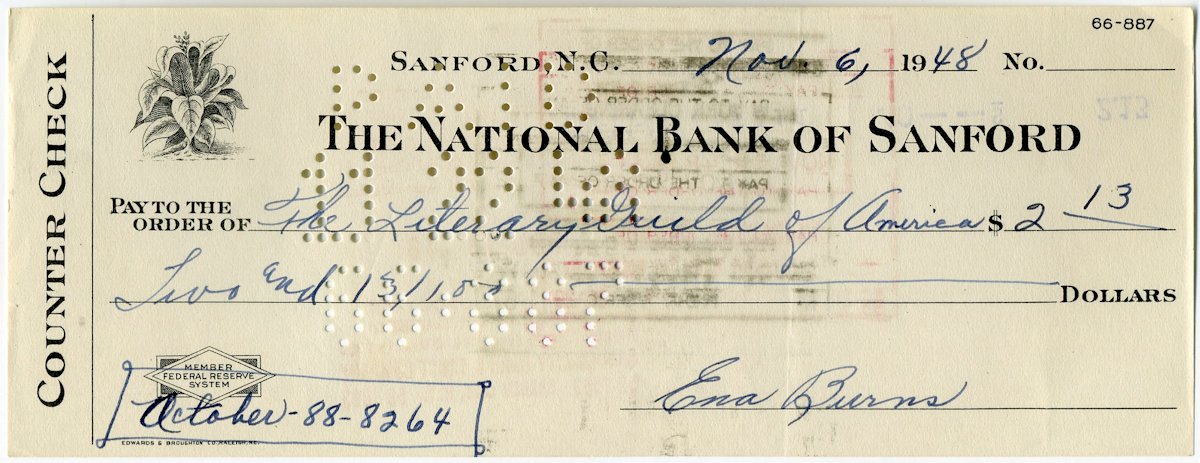 66-887
COUNTER CHECK
SANFORD, N.C. Nov. 6, 1948 No.
THE NATIONAL BANK OF SANFORD
PAY TO THE
ORDER OF The Literary Guild of America $ 2 13
Two and 13/100 DOLLARS
MEMBER
FEDERAL RESERVE
SYSTEM
October-88-8264
Ena Burns
EDWARDS & BROUGHTON CO. RALEIGH, N.C.
PAID